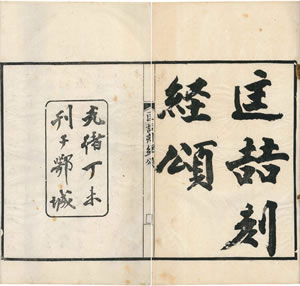 匡喆刻
経頌
匡喆刻經頌
光緒丁未
刊于鄂城